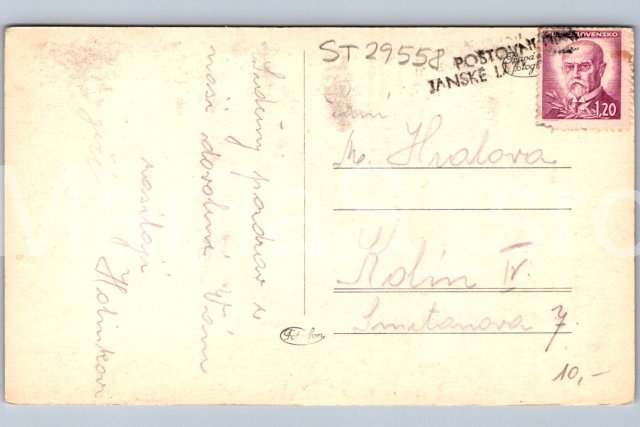 ST 29558
POŠTOVN
JANSKÉ L
OVENSKO
1,20
Srdečný pozdrav z
naší dovolené Vám
zasílají
Paní
M. Hralova
Kolín IV.
Smetanova 7.
10,-